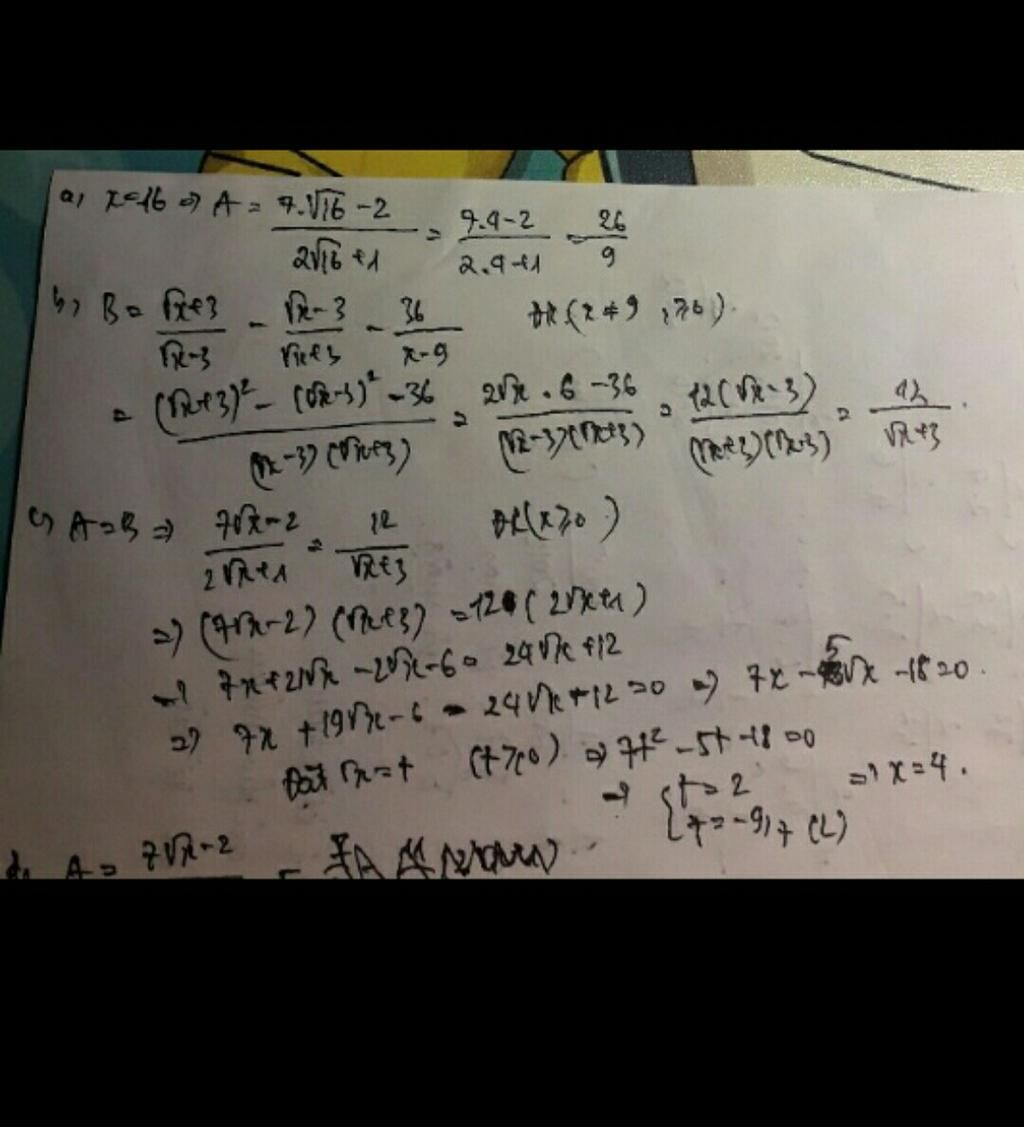 a, x=16 ⇒ A = (7.√16 - 2)/(2√16 + 1) = (7.4-2)/(2.4+1) = 26/9
b, B = (√x+3)/(√x-3) - (√x-3)/(√x+3) - 36/(x-9) ĐK (x ≠ 9, ≥0).
= ((√x+3)² - (√x-3)² - 36)/((√x-3)(√x+3)) = (2√x . 6 - 36)/((√x-3)(√x+3)) = 12(√x-3)/((√x+3)(√x-3)) = 12/(√x+3).
c, A=B ⇒ (7√x-2)/(2√x+1) = 12/(√x+3) ĐK (x≥0)
⇒ (7√x-2)(√x+3) = 12(2√x+1)
⇒ 7x+21√x-2√x-6 = 24√x+12
⇒ 7x+19√x-6 - 24√x+12=0 ⇒ 7x-5√x-18=0.
Đặt √x=t (t≥0) ⇒ 7t²-5t-18=0
⇒ [t=2 ⇒ x=4.
t=-9/7 (L)
d, A = 7√x-2